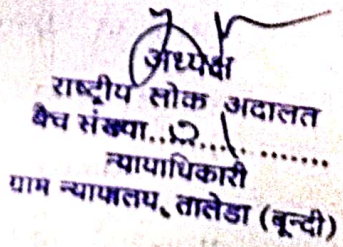 अध्यक्ष
राष्ट्रीय लोक अदालत
बैंच संख्या..............
न्यायाधिकारी
ग्राम न्यायालय, तालेडा (बून्दी)